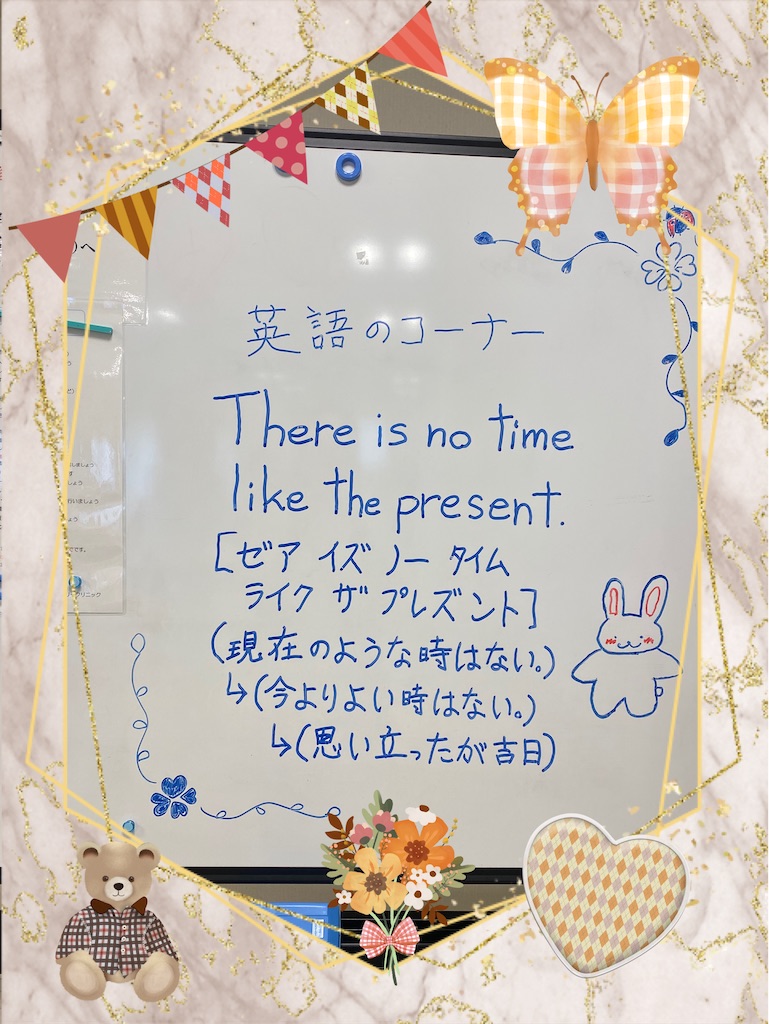 英語のコーナー
There is no time
like the present.
[ゼア イズ ノー タイム
ライク ザ プレズント]
(現在のような時はない。)
↳(今よりよい時はない。)
↳(思い立ったが吉日)